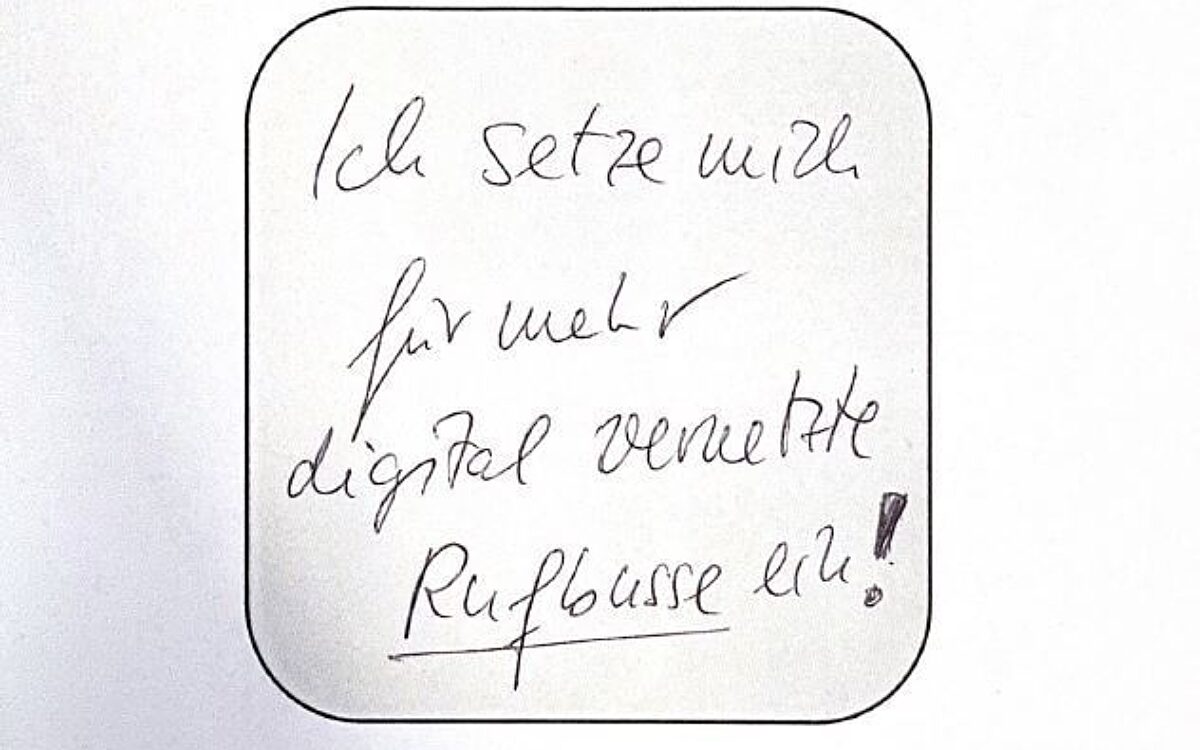 Ich setze mich
für mehr
digital vernetzte
Rufbusse ein!